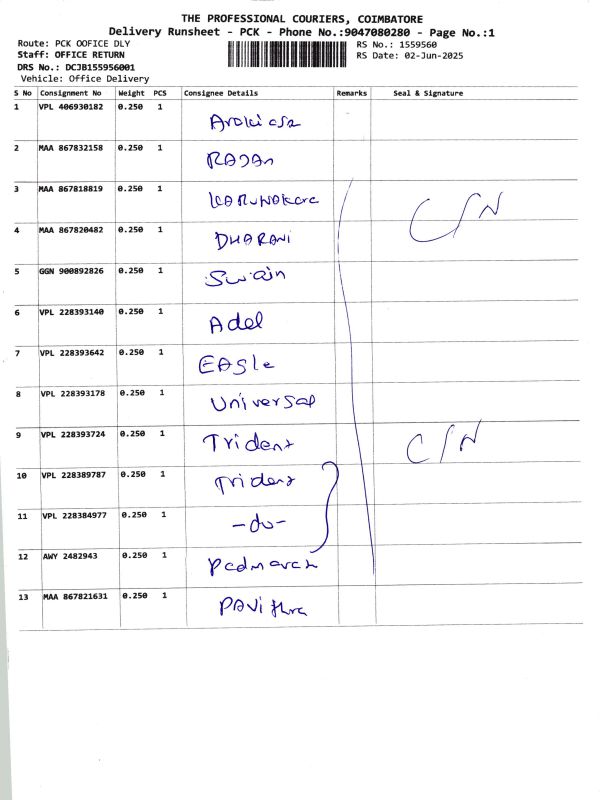 THE PROFESSIONAL COURIERS, COIMBATORE
Delivery Runsheet - PCK - Phone No.:9047080280 - Page No.:1
Route: PCK OOFICE DLY
RS No.: 1559560
Staff: OFFICE RETURN
RS Date: 02-Jun-2025
DRS No.: DCJB155956001
Vehicle: Office Delivery
S No Consignment No Weight PCS Consignee Details Remarks Seal & Signature
1 VPL 406930182 0.250 1
2 MAA 867832158 0.250 1 RAJAN
3 MAA 867818819 0.250 1 KARUNAKARA
4 MAA 867820482 0.250 1 DHARANI
C/N
5 GGN 900892826 0.250 1 Swain
6 VPL 228393140 0.250 1 Adel
7 VPL 228393642 0.250 1 EAGle
8 VPL 228393178 0.250 1 Universal
9 VPL 228393724 0.250 1 Trident C/N
10 VPL 228389787 0.250 1 Trident
11 VPL 228384977 0.250 1 -do-
12 AWY 2482943 0.250 1
13 MAA 867821631 0.250 1 PAVithra